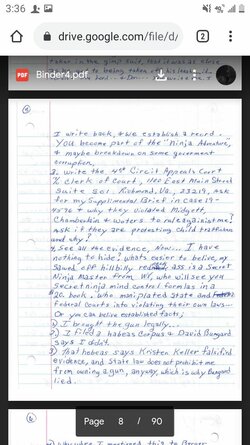 3:36
drive.google.com/file/d/
taken in the gimp suit, that was as close
Binder4.pdf
④
I write back, & we establish a record.
You become part of the "Ninja Adventure,"
& maybe breakdown on some government
corruption.
3. write the 4th Circuit Appeals Court
% Clerk of Court, 1100 East Main Street
Suite 501 Richmond, Va. 23219, Ask
for my Supplimental Brief in Case 19-
4576 & why they violated Midgett,
Chamberlin & waters to rule against me!
ask if they are protecting child traffickers
and why?
4. See all the evidence, Now... I have
nothing to hide! whats easier to belive, my
sawed off hillbilly ass is a Secret
Ninja Master from, WV, who will see you
secret ninja mind control formlas in a
$20. book, who maniplated State and
Federal Courts into violating their own laws...
Or you can belive established facts;
1) I brought the gun legally...
2) I filed a habeas Corpus & David Bungard
says I didn't.
3) That habeas says Kristen Keller falsified
evidence, and State law does not prohibit me
from owning a gun, anyway, which is why Bungard
lied.
Page 8 / 90
⑥
why I mentioned this to